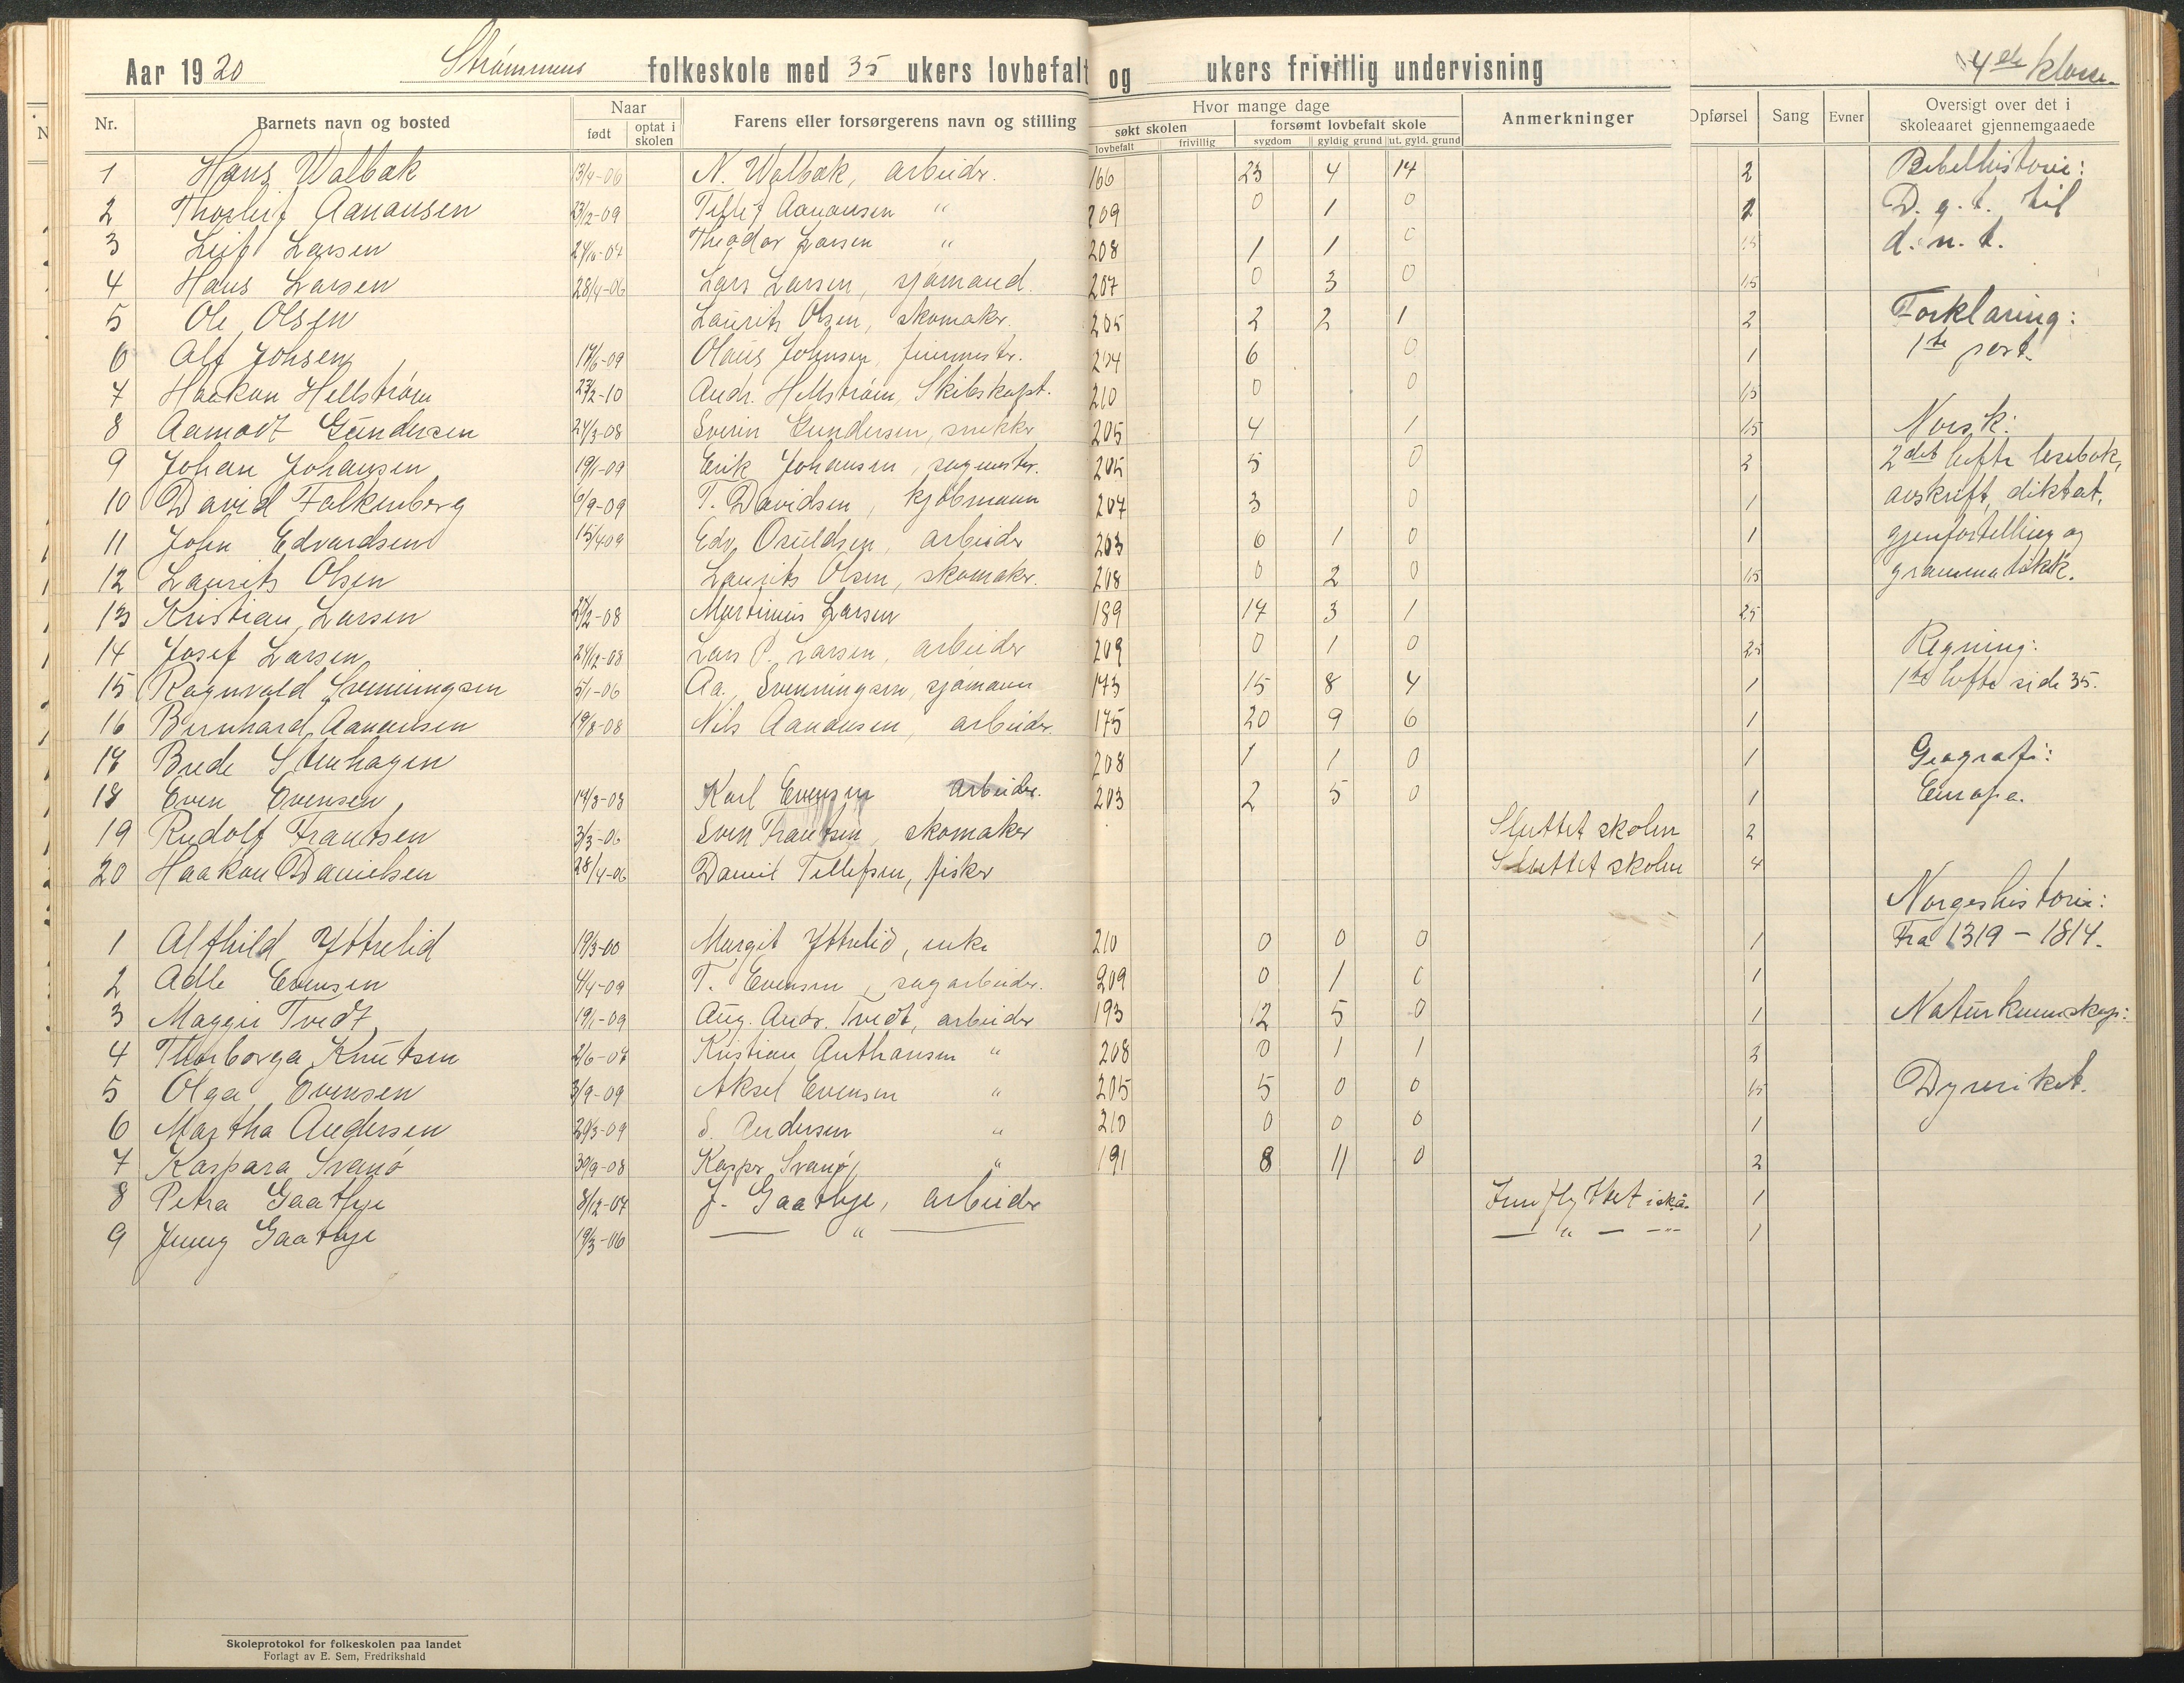 Aar 1920 Strømmens folkeskole med 35 ukers lovbefalt og ukers frivillig undervisning 4de klasse.
Nr. Barnets navn og bosted Naar født optat i skolen Farens eller forsørgerens navn og stilling Hvor mange dage søkt skolen lovbefalt frivillig forsømt lovbefalt skole sygdom gyldig grund ut. gyld. grund Anmerkninger Opførsel Sang Evner Oversigt over det i skoleaaret gjennemgaaede
1 Hans Walbæk 13/4-06 N. Walbæk, arbeider. 166 23 4 14 2 Bibelhistorie:
2 Thorleif Aanansen 23/2-09 Tellef Aanansen " 209 0 1 0 2 D. g. t. til
3 Leif Larsen Theodor Larsen " 208 1 1 0 1,5 d. n. t.
4 Hans Larsen 28/4-06 Lars Larsen, sjømand. 207 0 3 0 1,5
5 Ole Olsen Laurits Olsen, skomaker. 205 2 2 1 2 Forklaring:
6 Alf Johsen 17/6-09 Olaus Johnsen, 204 6 0 1 1ste part.
7 Haakon Hellstrøm 27/2-10 Andr. Hellstrøm, Skibskapt. 210 0 0 1,5
8 Aamodt Gundersen 24/3-08 Sverin Gundersen, snekker 205 4 1 1,5 Norsk:
9 Johan Johansen 19/1-09 Erik Johansen, sagmester. 205 5 0 2 2det hefte lesebok,
10 David Falkenberg 6/9-09 T. Davidsen, kjøbmann 207 3 0 1 avskrift, diktat,
11 John Edvardsen 15/4 09 Edv. Osuldsen, arbeider 203 6 1 0 1 gjenfortelling og
12 Laurits Olsen Laurits Olsen, skomaker. 208 0 2 0 1,5 grammatikk.
13 Kristian Larsen Martinius Larsen 189 14 3 1 2,5
14 Josef Larsen 24/12-08 Lars P. Larsen, arbeider 209 0 1 0 2,5 Regning:
15 Ragnvald Svenningsen 5/1-06 Aa. Svenningsen, sjømann 173 15 8 4 1 1ste hefte side 35.
16 Bernhard Aanansen 19/8-08 Nils Aanansen, arbeider. 175 20 9 6 1
17 Brede Stenhagen 208 1 1 0 1 Geografi:
18 Even Evensen 14/3-08 Karl Evensen arbeider. 203 2 5 0 1 Europa.
19 Rudolf Frantsen 3/3-06 Sven Frantsen, skomaker Sluttet skolen 2
20 Haakon Danielsen 28/4-06 Daniel Tellefsen, fisker Sluttet skolen 4
Norgeshistorie:
1 Alfhild Yttrelid 19/3-00 Margit Yttrelid, enke 210 0 0 0 1 Fra 1319 - 1814.
2 Adle Evensen 4/4-09 T. Evensen, sagarbeider. 209 0 1 0 1
3 Maggie Tvedt 19/1-09 Aug. Andr. Tvedt, arbeider 193 12 5 0 1 Naturkunnskap:
4 Thorborga Knutsen 2/6-07 Kristian Anthansen " 208 0 1 1 2
5 Olga Evensen 3/9-09 Aksel Evensen " 205 5 0 0 1,5 Dyreriket.
6 Martha Andersen 29/3-09 S. Andersen " 210 0 0 0 1
7 Kaspara Svanø 30/9-08 Kasper Svanø " 191 8 11 0 2
8 Petra Gaathje 8/12-07 J. Gaathje, arbeider Innflyttet i skå. 1
9 Jenny Gaathje 19/3-06 — " — — " — -"- 1
Skoleprotokol for folkeskolen paa landet
Forlagt av E. Sem, Fredrikshald